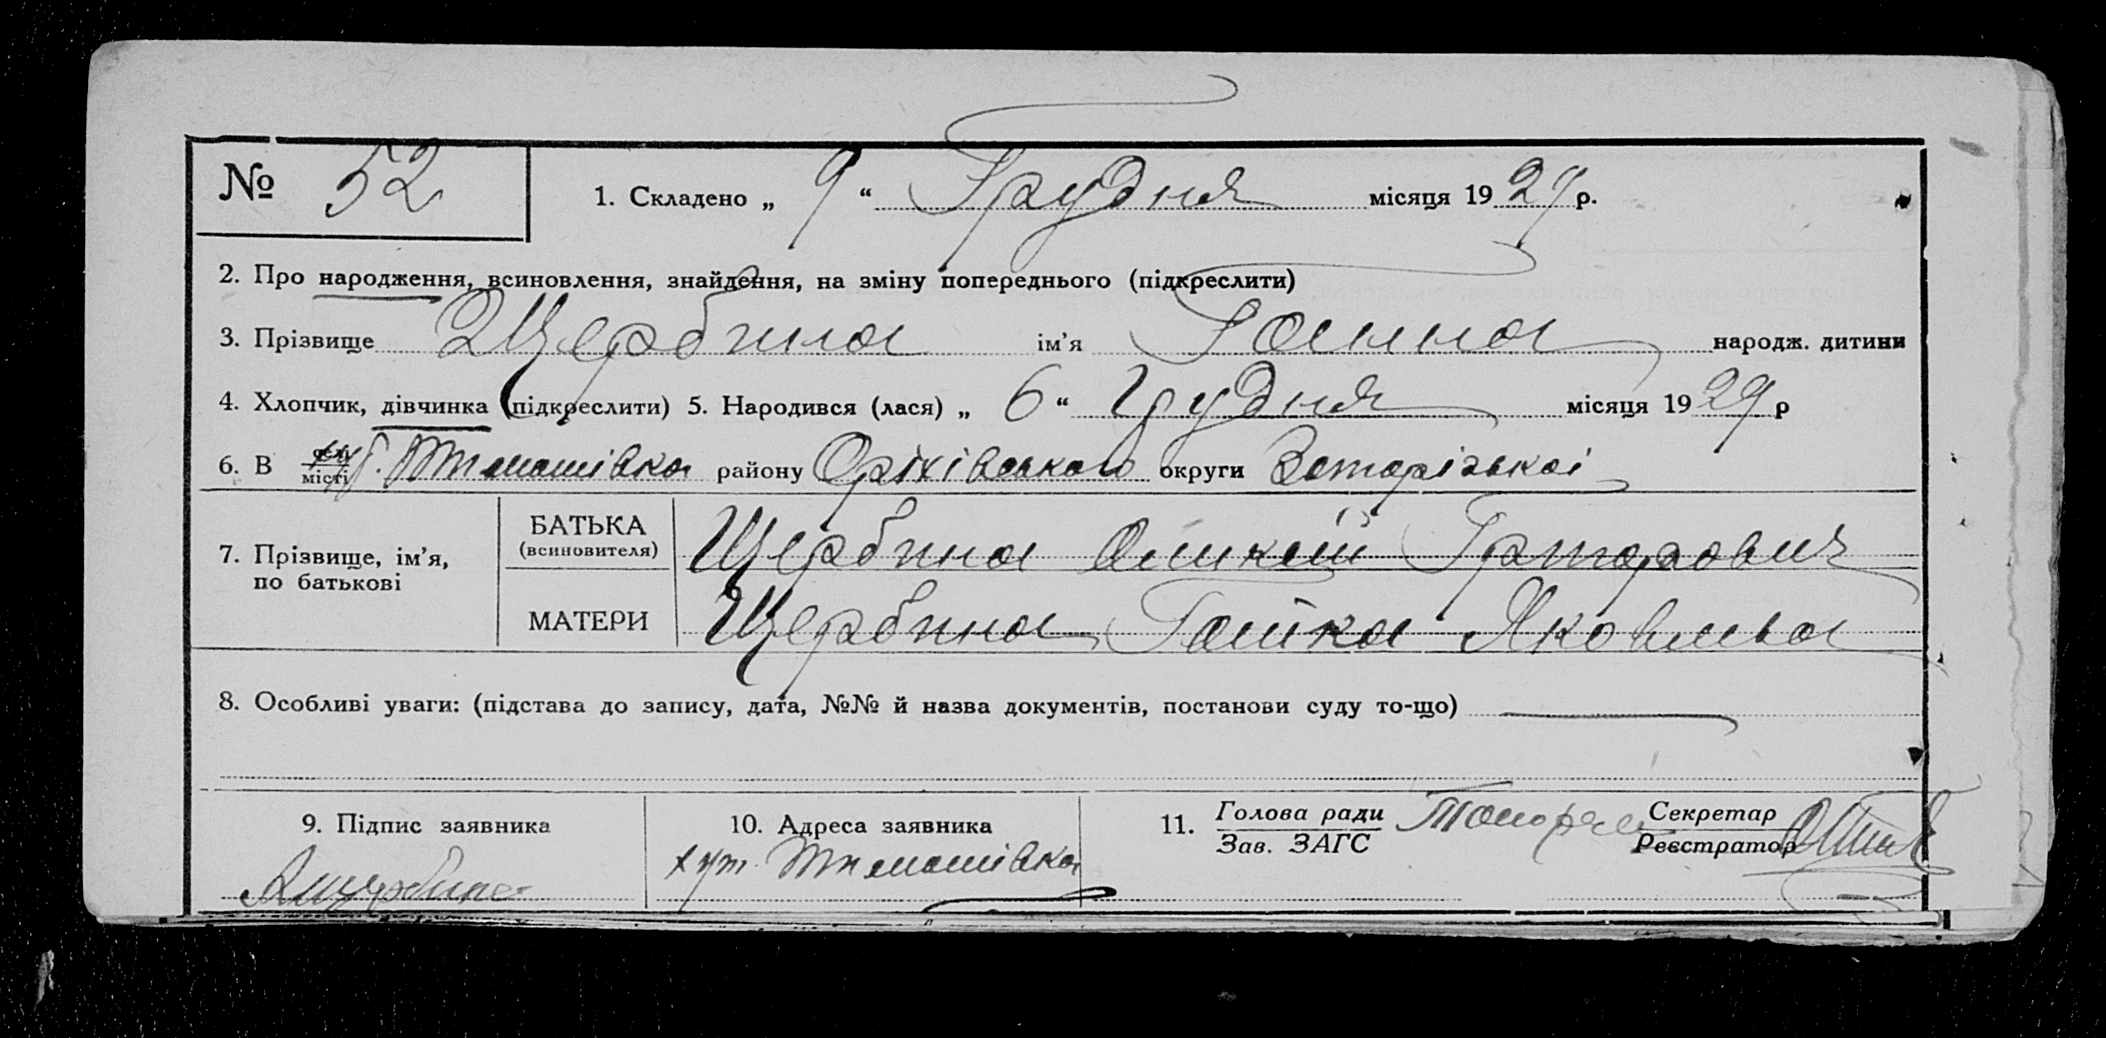 № 52 1. Складено „ 9 “ Грудня місяця 1929 р.
2. Про народження, всиновлення, знайдення, на зміну попереднього (підкреслити)
3. Прізвище Щербина ім’я Ганна народж. дитини
4. Хлопчик, дівчинка (підкреслити) 5. Народився (лася) „ 6 “ Грудня місяця 1929 р
6. В місті хут. Тимошівка району Оріхівського округи Запорізької
7. Прізвище, ім’я, по батькові БАТЬКА (всиновителя) Щербина Григорович
МАТЕРИ Щербина Яковлева
8. Особливі уваги: (підстава до запису, дата, №№ й назва документів, постанови суду то-що)
9. Підпис заявника 10. Адреса заявника 11. Голова ради Секретар
Зав. ЗАГС Реєстратор
Щербина хут. Тимошівка